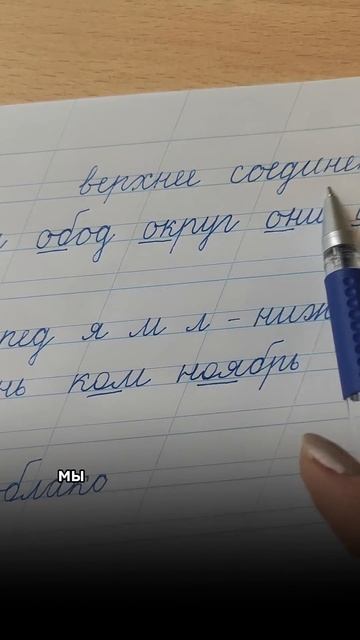 верхнее соедине
обод округ они
пед я м л - ниж
нь ком ноябрь
мы
облако